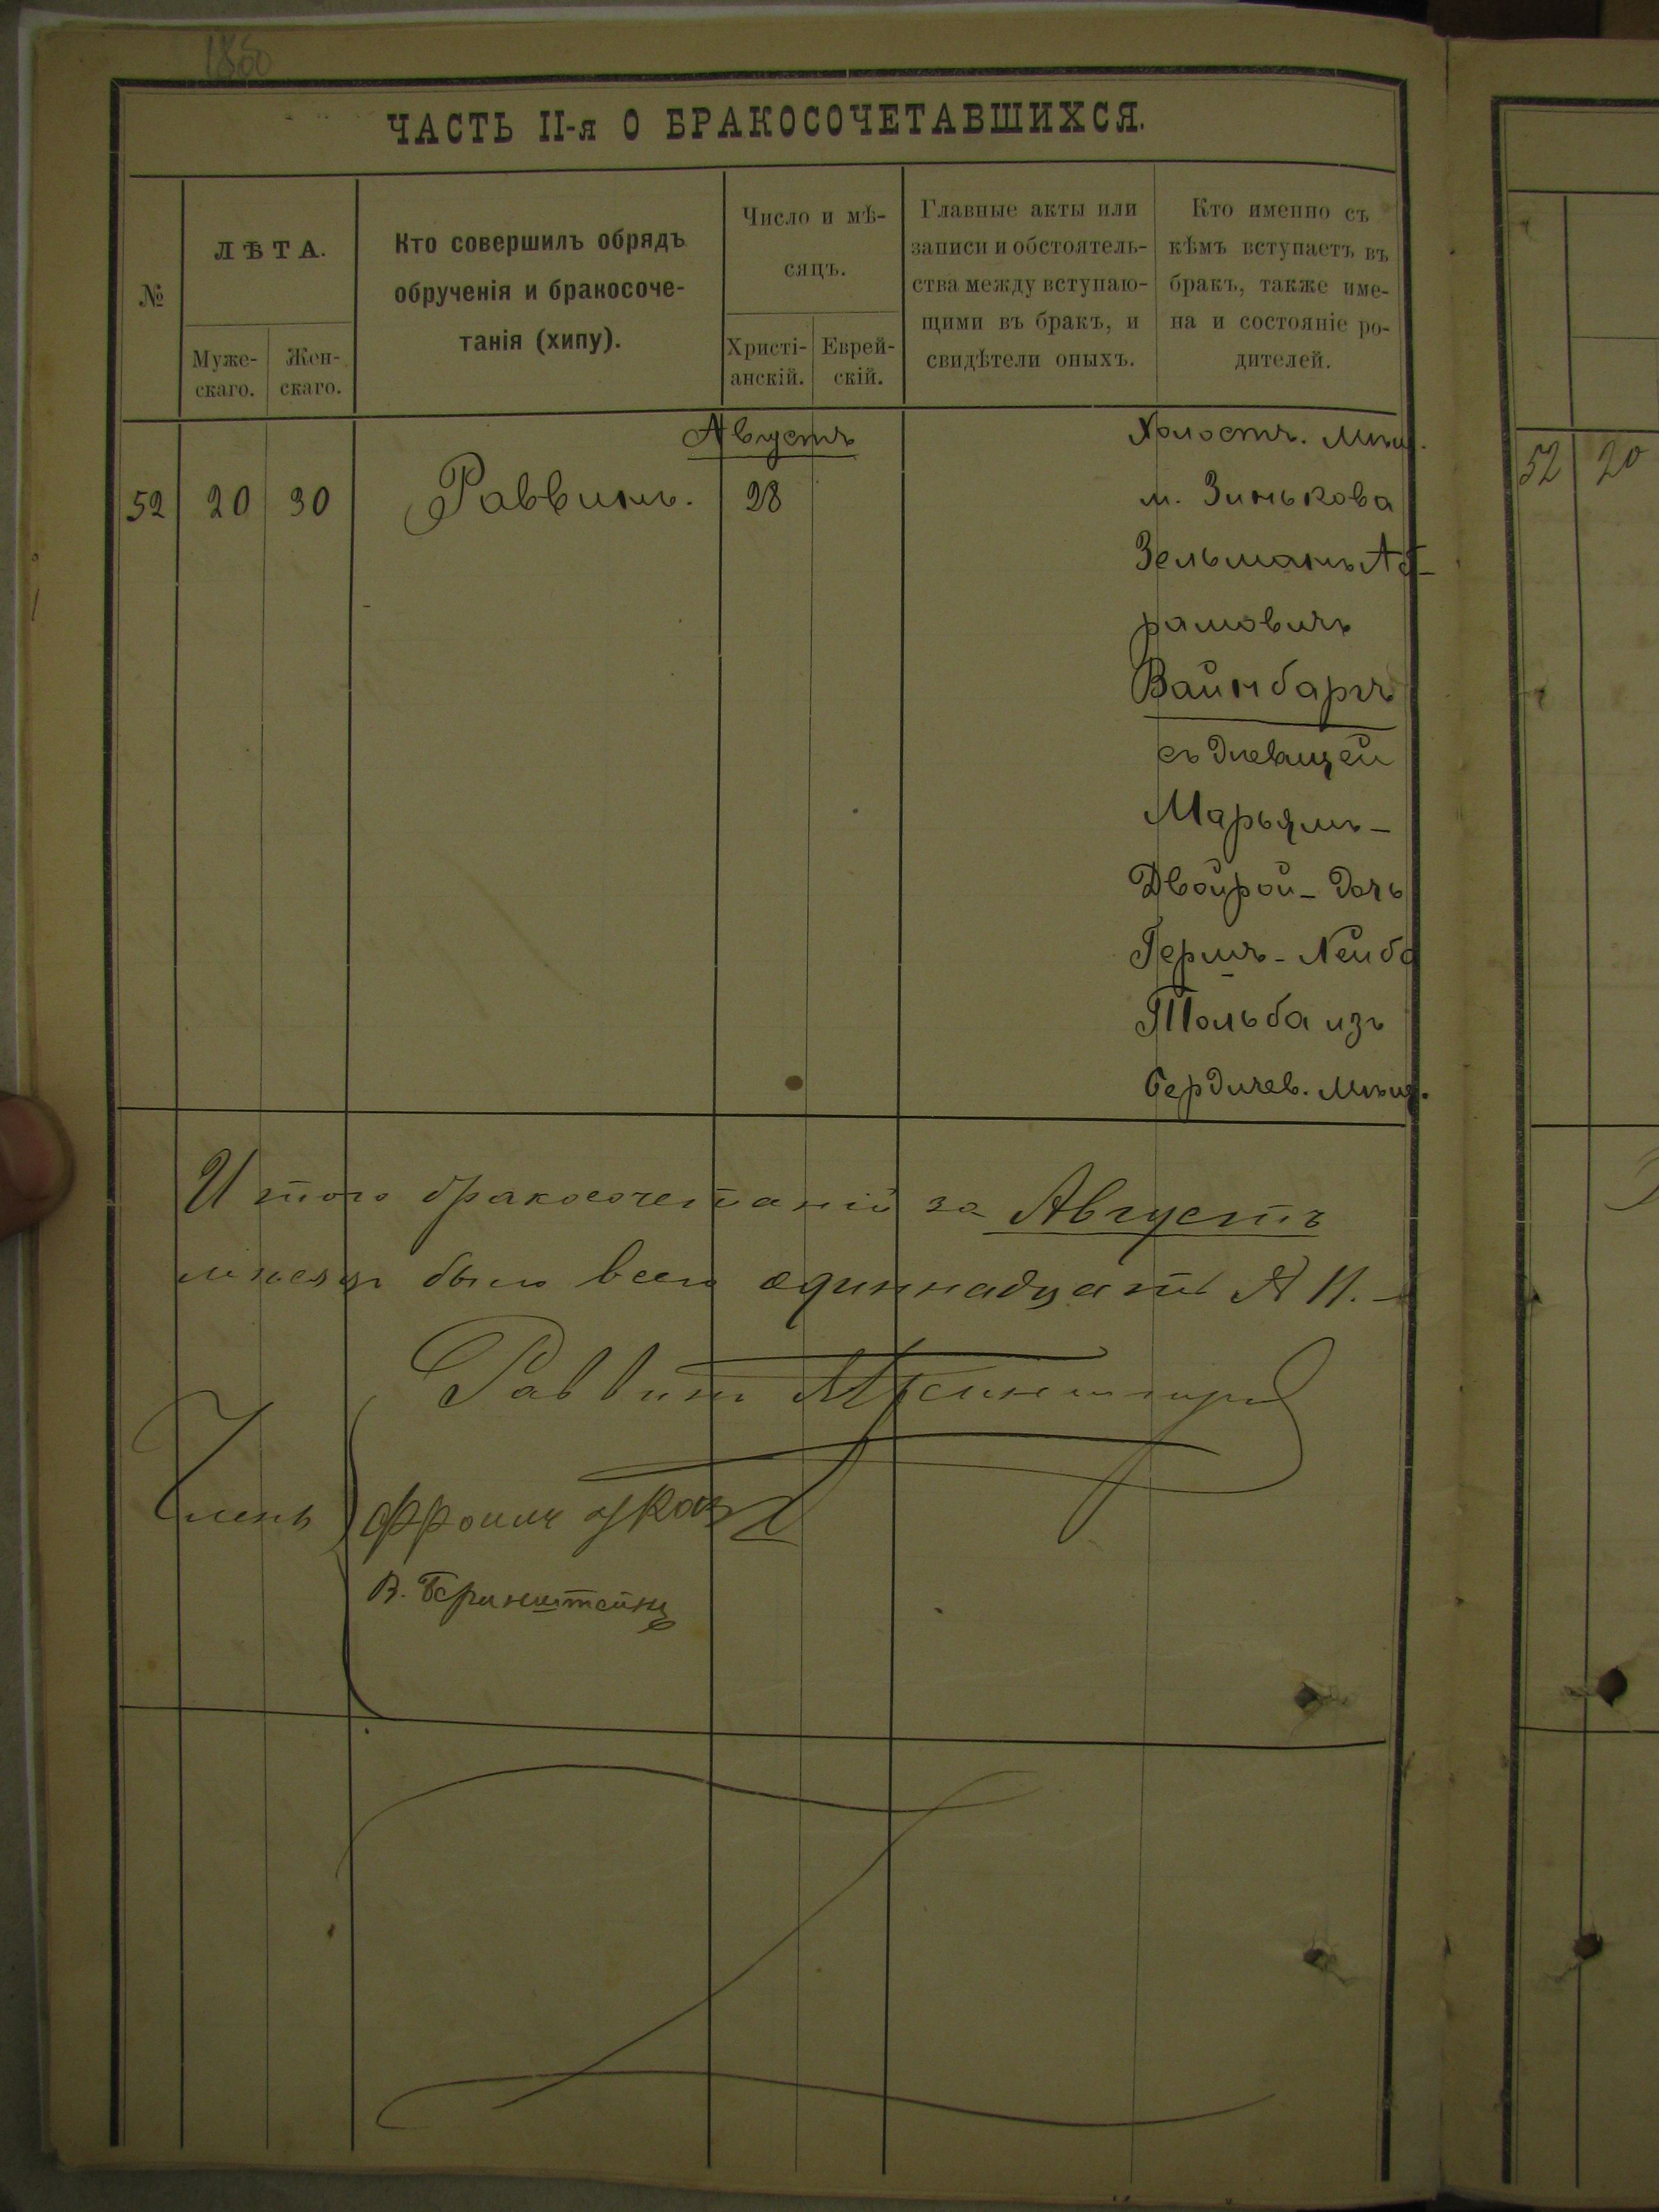 ЧАСТЬ II-я О БРАКОСОЧЕТАВШИХСЯ.
№
ЛѢТА.
Муже-
скаго.
Жен-
скаго.
Кто совершилъ обрядъ
обрученія и бракосоче-
танія (хипу).
Число и мѣ-
сяцъ.
Христі-
анскій.
Еврей-
скій.
Главные акты или
записи и обстоятель-
ства между вступаю-
щими въ бракъ, и
свидѣтели оныхъ.
Кто именно съ
кѣмъ вступаетъ въ
бракъ, также име-
на и состояніе ро-
дителей.
Августъ
52 20 30 Раввинъ. 28
Холостъ. Мѣщ.
м. Зинькова
Зельманъ Аб-
рамовичъ
Вайнбаргъ
съ дѣвицей
Марьямъ-
Двойрой - дочь
Гершъ - Лейба
Тольба изъ
Бердичев. мѣщ.
Итого бракосочетаній за Августъ
мѣсяцъ было всего одиннадцать № 11. -
Раввинъ
Члены
В. Беринштейнъ
52 20